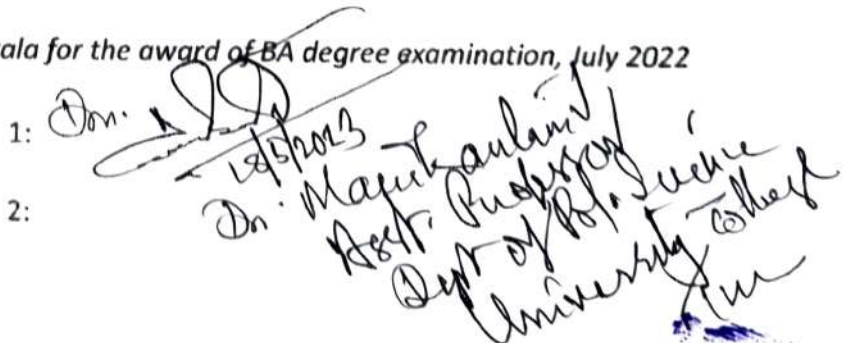 ala for the award of BA degree examination, July 2022
1: Dr.
18/5/2023
2:
Dr.
Asst. Professor
Dept of Pol. Science
University College
Tvm